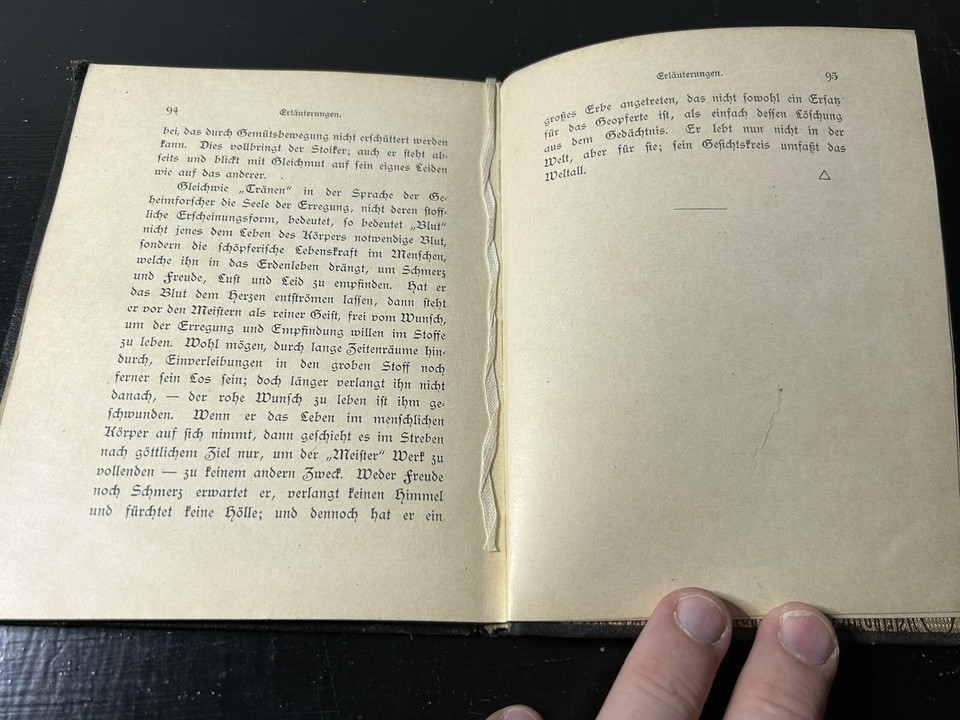 94
Erläuterungen.
bei, das durch Gemütsbewegung nicht erschüttert werden
kann. Dies vollbringt der Stoiker; auch er steht ab-
seits und blickt mit Gleichmut auf sein eignes Leiden
wie auf das anderer.
Gleichwie „Tränen“ in der Sprache der Ge-
heimforscher die Seele der Erregung, nicht deren stoff-
liche Erscheinungsform, bedeutet, so bedeutet „Blut“
nicht jenes dem Leben des Körpers notwendige Blut,
sondern die schöpferische Lebenskraft im Menschen,
welche ihn in das Erdenleben drängt, um Schmerz
und Freude, Lust und Leid zu empfinden. Hat er
das Blut dem Herzen entströmen lassen, dann steht
er vor den Meistern als reiner Geist, frei vom Wunsch,
um der Erregung und Empfindung willen im Stoffe
zu leben. Wohl mögen, durch lange Zeitenräume hin-
durch, Einverleibungen in den groben Stoff noch
ferner sein Los sein; doch länger verlangt ihn nicht
danach, — der rohe Wunsch zu leben ist ihm ge-
schwunden. Wenn er das Leben im menschlichen
Körper auf sich nimmt, dann geschieht es im Streben
nach göttlichem Ziel nur, um der „Meister“ Werk zu
vollenden — zu keinem andern Zweck. Weder Freude
noch Schmerz erwartet er, verlangt keinen Himmel
und fürchtet keine Hölle; und dennoch hat er ein
Erläuterungen.
95
großes Erbe angetreten, das nicht sowohl ein Ersatz
für das Geopferte ist, als einfach dessen Löschung
aus dem Gedächtnis. Er lebt nun nicht in der
Welt, aber für sie; sein Gesichtskreis umfaßt das
Weltall. △